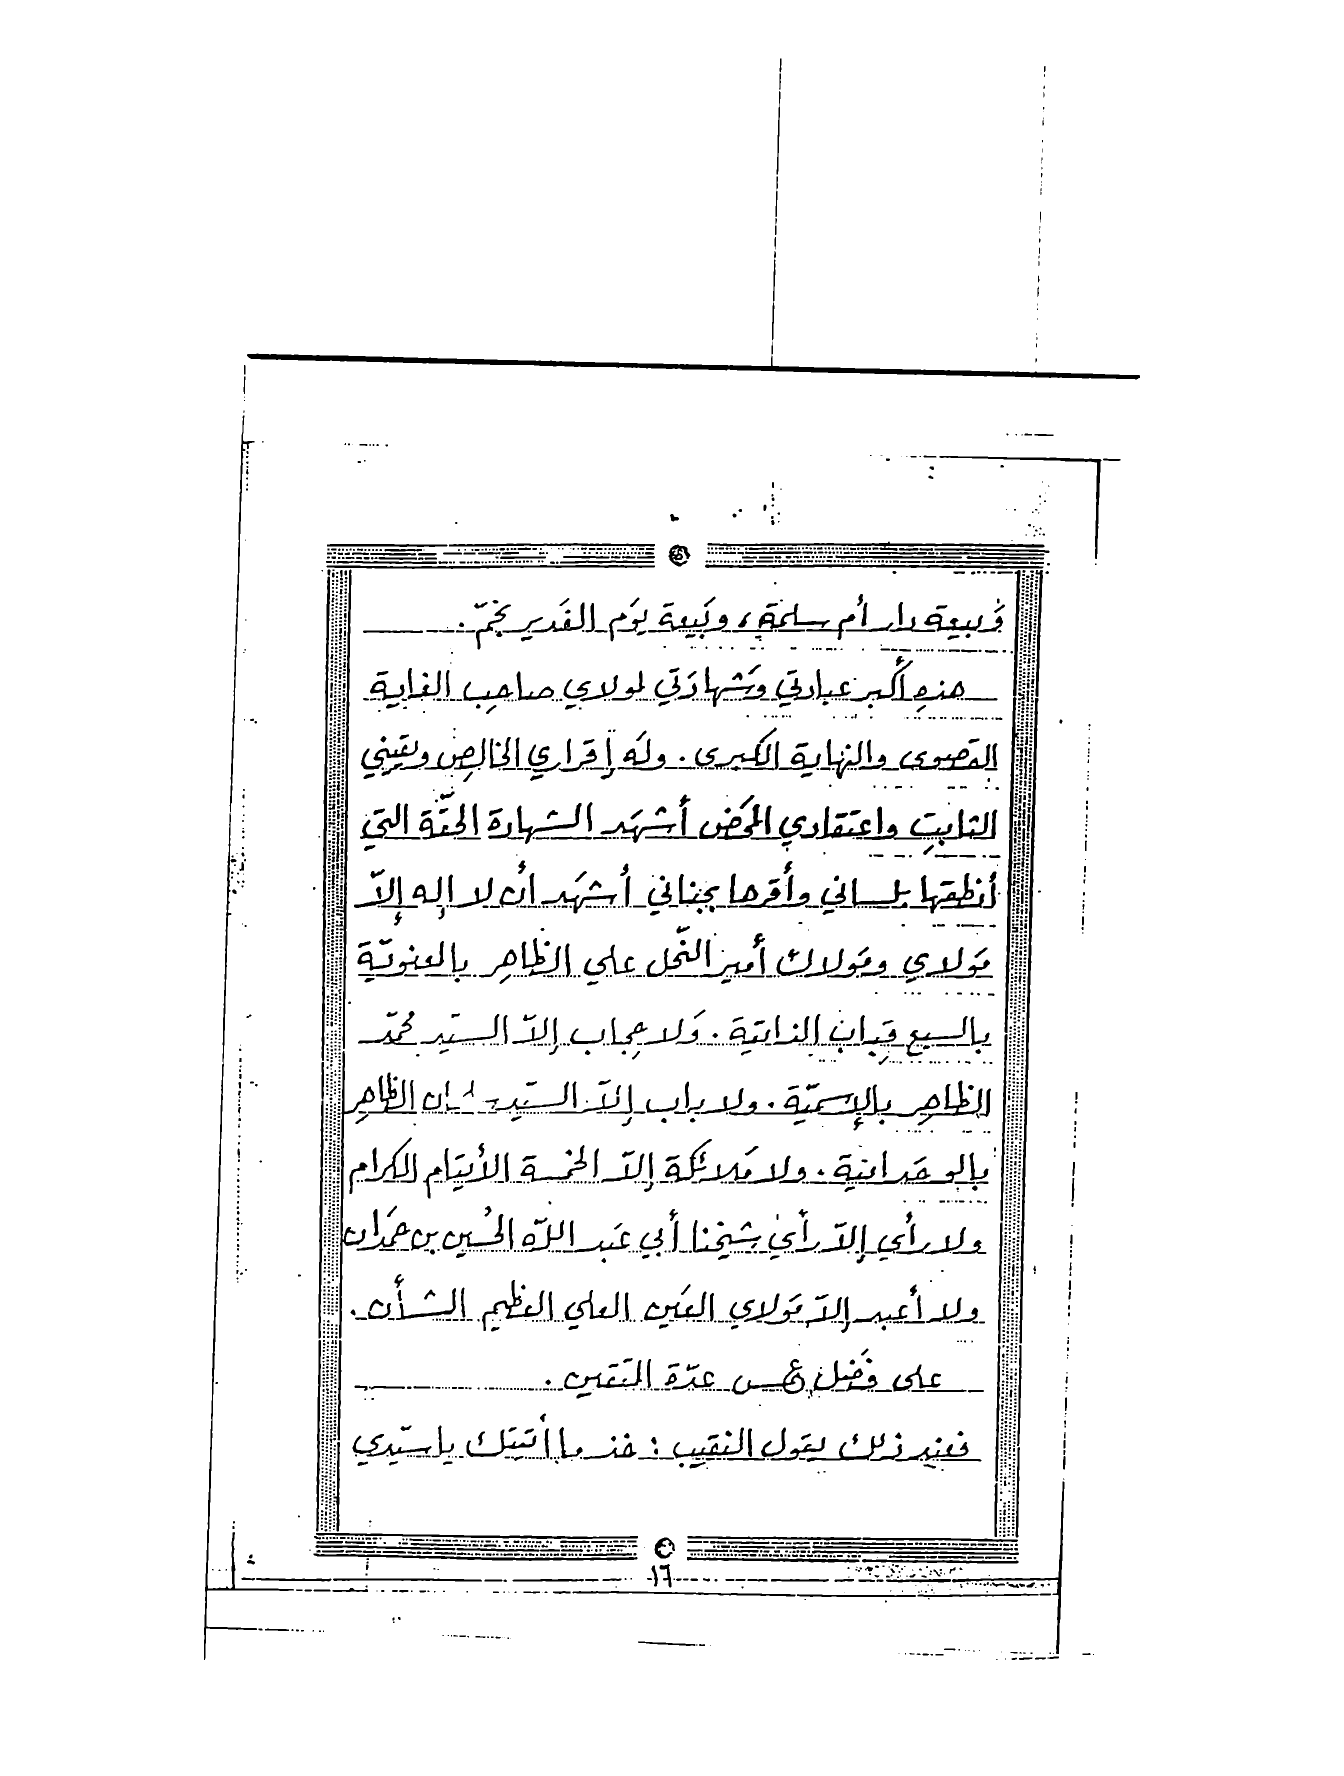 وَبيعة دار أم سلمة، وبَيعة يَوم الغَدير بخُمّ.
هذهِ أكبر عبادتي وَشهادَتي لمولاي صاحِب الغاية
القصوى والنهاية الكبرى. ولَه إقراري الخالِص ويقيني
الثابِت واعتقادي المحَض أشهَد الشهادة الحقّة التي
أنطقها بلساني وأقرها بجناني أشهَد أن لا إله إلاّ
مَولاي ومَولاك أمير النّحل علي الظاهِر بالمعنويّة
بالسبع قِباب الذاتية. وَلا حِجاب إلاّ السيّد محُمّد
الظاهِر بالإسميّة. ولا باب إلاّ السيّد الظاهِر
بالوحَدانية. ولا مَلائكة إلاّ الخمسة الأيتام الكرام
ولا رأي إلاّ رأي شيخنا أبي عَبد اللّه الحُسين بن حمَدان
ولا أعبد إلاّ مَولاي العَين العلي العظيم الشأن.
على فَضل ع س عدّة المتَقين.
فعنِد ذلك يقول النقيب: خذ ما أتَيتَك يا سيّدي
١٦